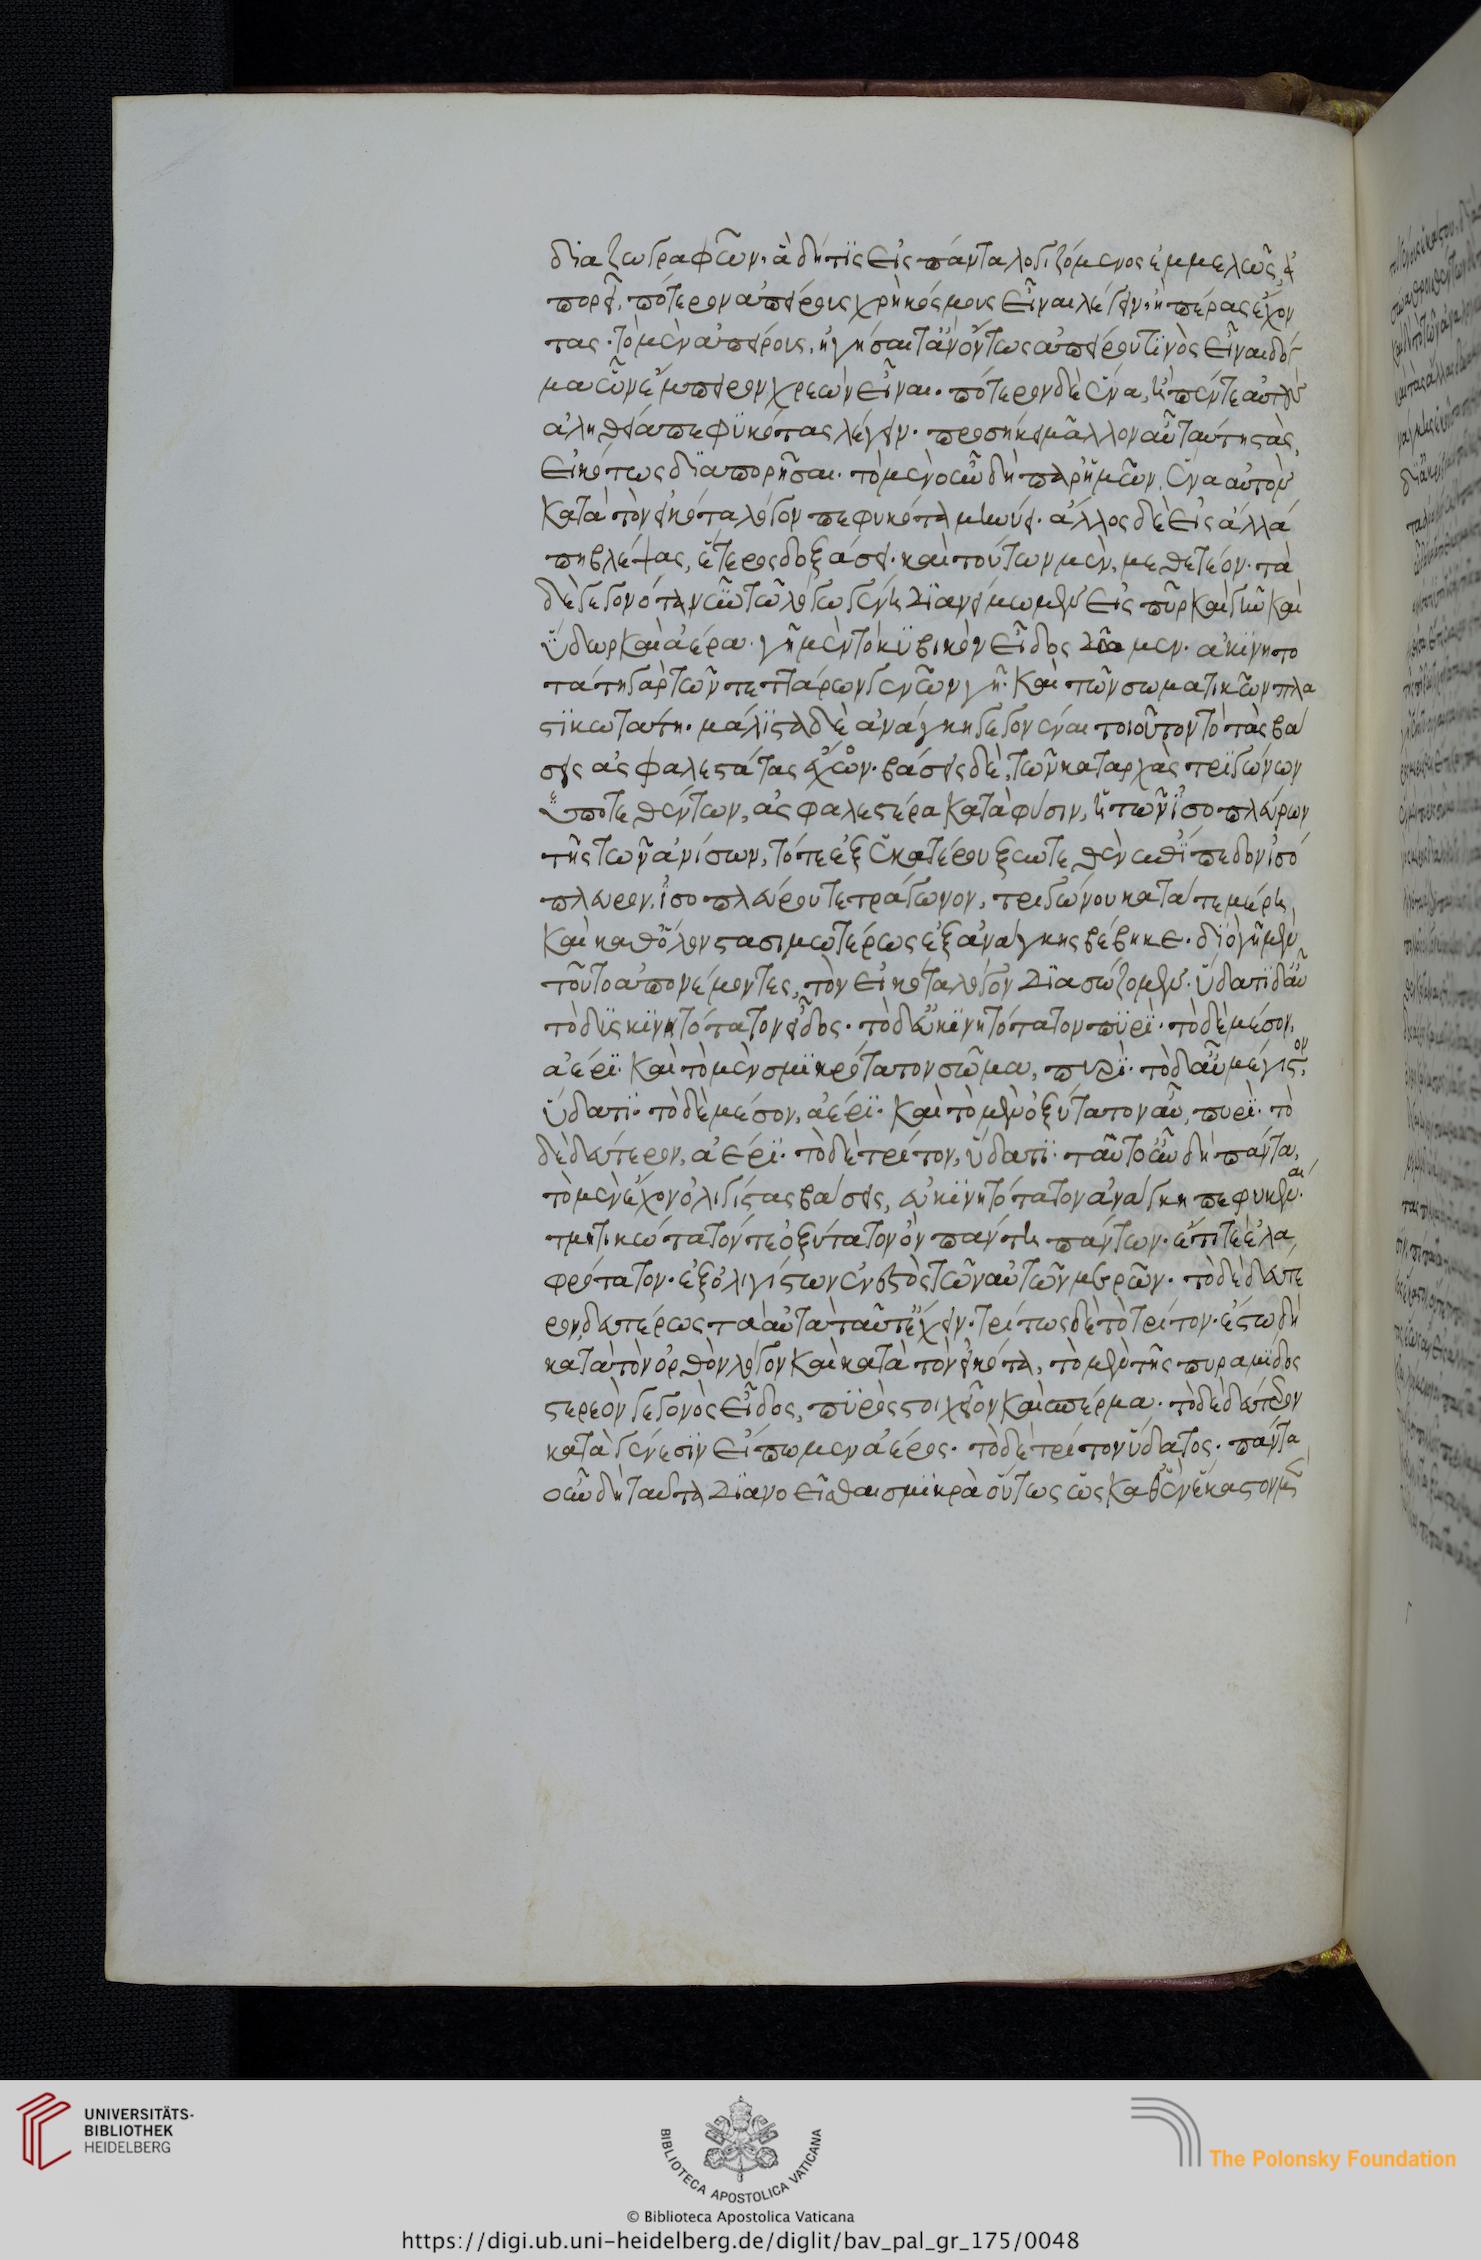 διαζωγραφῶν. ἃ δή τις εἰς πάντα λογιζόμενος ἐμμελῶς, ἀ
ποροῖ, πότερον ἀπείρους χρὴ κόσμους εἶναι λέγειν. ἢ πέρας ἔχον
τας. τὸ μὲν ἀπείρους, ἡγήσαιτ' ἂν ὄντως ἀπείρου τινὸς εἶναι δό
μα ὧν ἔμπειρον χρεὼν εἶναι. πότερον δὲ ἕνα, ἢ πέντε αὐτοὺς
ἀληθείᾳ πεφυκότας λέγειν. προσήκει μᾶλλον ἂν ταύτῃ στὰς,
εἰκότως διαπορῆσαι. τὸ μὲν οὖν δὴ παρ' ἡμῶν, ἕνα αὐτὸν
κατὰ τὸν εἰκότα λόγον πεφυκότα μηνύει. ἄλλος δὲ εἰς ἄλλά
πη βλέψας, ἕτερος δοξάσει. καὶ τούτων μὲν, μεθετέον. τὰ
δὲ γεγονότα νῦν τῷ λόγῳ γένη διανείμωμεν εἰς πῦρ καὶ γῆν καὶ
ὕδωρ καὶ ἀέρα. γῇ μὲν τὸ κυβικὸν εἶδος δῶμεν. ἀκινητο
τάτη γὰρ τῶν τεττάρων γενῶν γῆ. καὶ τῶν σωματικῶν πλα
στικωτάτη. μάλιστα δὲ ἀνάγκη γεγονέναι τοιοῦτον τὸ τὰς βά
σεις ἀσφαλεστάτας ἔχον. βάσεις δὲ, τῶν κατ' ἀρχὰς τριγώνων
ὑποτεθέντων, ἀσφαλεστέρα κατὰ φύσιν, ἡ τῶν ἰσοπλεύρων
τῆς τῶν ἀνίσων, τό τε ἐξ ἑκατέρου ξυντεθὲν ἐπίπεδον ἰσό
πλευρον, ἰσοπλεύρου τετράγωνον, τριγώνου κατά τε μέρη,
καὶ καθ' ὅλον στασιμωτέρως ἐξ ἀνάγκης βέβηκε. διὸ γῇ μὲν
τοῦτο ἀπονέμοντες, τὸν εἰκότα λόγον διασώζομεν. ὕδατι δ' αὖ
τὸ δυσκινητότατον εἶδος. τὸ δ' εὐκινητότατον πυρὶ. τὸ δὲ μέσον,
ἀέρι. καὶ τὸ μὲν σμικρότατον σῶμα, πυρὶ. τὸ δ' αὖ μέγιστον,
ὕδατι. τὸ δὲ μέσον, ἀέρι. καὶ τὸ μὲν ὀξύτατον αὖ, πυρὶ. τὸ
δὲ δεύτερον, ἀέρι. τὸ δὲ τρίτον, ὕδατι. ταῦτ' οὖν δὴ πάντα,
τὸ μὲν ἔχον ὀλιγίστας βάσεις, εὐκινητότατον ἀνάγκη πεφυκέναι.
τμητικώτατόν τε ὀξύτατον ὂν πάντῃ πάντων. ἔτι τε ἐλα
φρότατον. ἐξ ὀλιγίστων ξυνεστὸς τῶν αὐτῶν μερῶν. τὸ δὲ δεύτε
ρον, δευτέρως τὰ αὐτὰ ταῦτ' ἔχειν. τρίτως δὲ τὸ τρίτον. ἔστω δὴ
κατὰ τὸν ὀρθὸν λόγον καὶ κατὰ τὸν εἰκότα, τὸ μὲν τῆς πυραμίδος
στερεὸν γεγονὸς εἶδος, πυρὸς στοιχεῖον καὶ σπέρμα. τὸ δὲ δεύτερον
κατὰ γένεσιν εἴπωμεν ἀέρος. τὸ δὲ τρίτον ὕδατος. πάντα
οὖν δὴ ταῦτα διανοεῖσθαι σμικρὰ οὕτως ὡς καθ' ἓν ἕκαστον μὲν
UNIVERSITÄTS-
BIBLIOTHEK
HEIDELBERG
BIBLIOTECA APOSTOLICA VATICANA
The Polonsky Foundation
© Biblioteca Apostolica Vaticana
https://digi.ub.uni-heidelberg.de/diglit/bav_pal_gr_175/0048